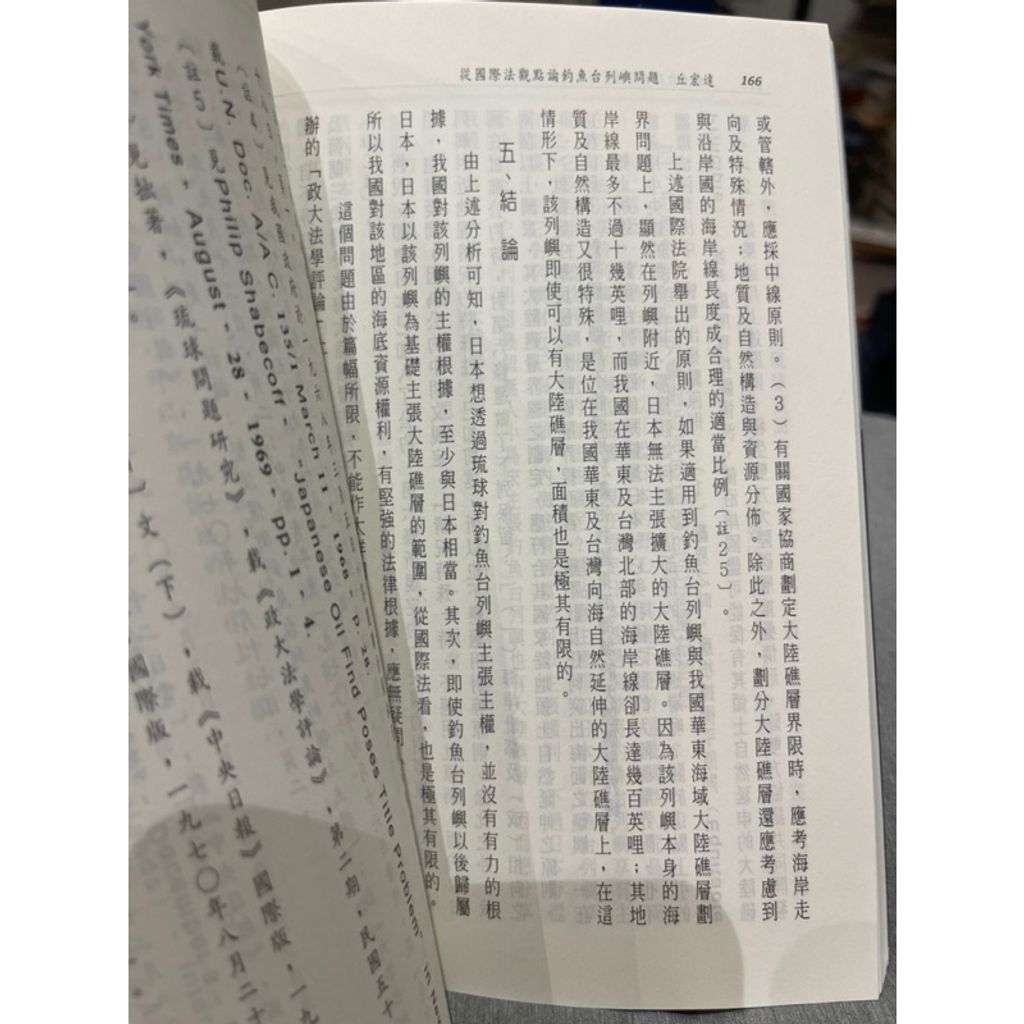 從國際法觀點論釣魚台列嶼問題 丘宏達 166
或管轄外，應採中線原則。（3）有關國家協商劃定大陸礁層界限時，應考海岸走
向及特殊情況；地質及自然構造與資源分佈。除此之外，劃分大陸礁層還應考慮到
與沿岸國的海岸線長度成合理的適當比例〔註25〕。
上述國際法院舉出的原則，如果適用到釣魚台列嶼與我國華東海域大陸礁層劃
界問題上，顯然在列嶼附近，日本無法主張擴大的大陸礁層。因為該列嶼本身的海
岸線最多不過十幾英哩，而我國在華東及台灣北部的海岸線卻長達幾百英哩；其地
質及自然構造又很特殊，是位在我國華東及台灣向海自然延伸的大陸礁上，在這
情形下，該列嶼即使可以有大陸礁層，面積也是極其有限的。
五、結論
由上述分析可知，日本想透過琉球對釣魚台列嶼主張主權，並沒有有力的根
據，我國對該列嶼的主權根據，至少與日本相當。其次，即使釣魚台列嶼以後歸屬
日本，日本以該列嶼為基礎主張大陸礁層的範圍，從國際法看，也是極其有限的。
所以我國對該地區的海底資源權利，有堅強的法律根據，應無疑問
這個問題由於篇幅所限，不能作大
辦的「政大法學評論
A/AC. 135/1 March 11, 1968, P. 28.
（註5）見Philip Shabecoff, "Japanese Oil Find Poses Title Problem,"
York Times, August 28, 1969, pp. 1, 4.
著，《琉球問題研究》，載《政大法學評論》，第二期，民國五十
文（下），載《中央日報》國際版，一九
國際版，一九七〇年八月二十